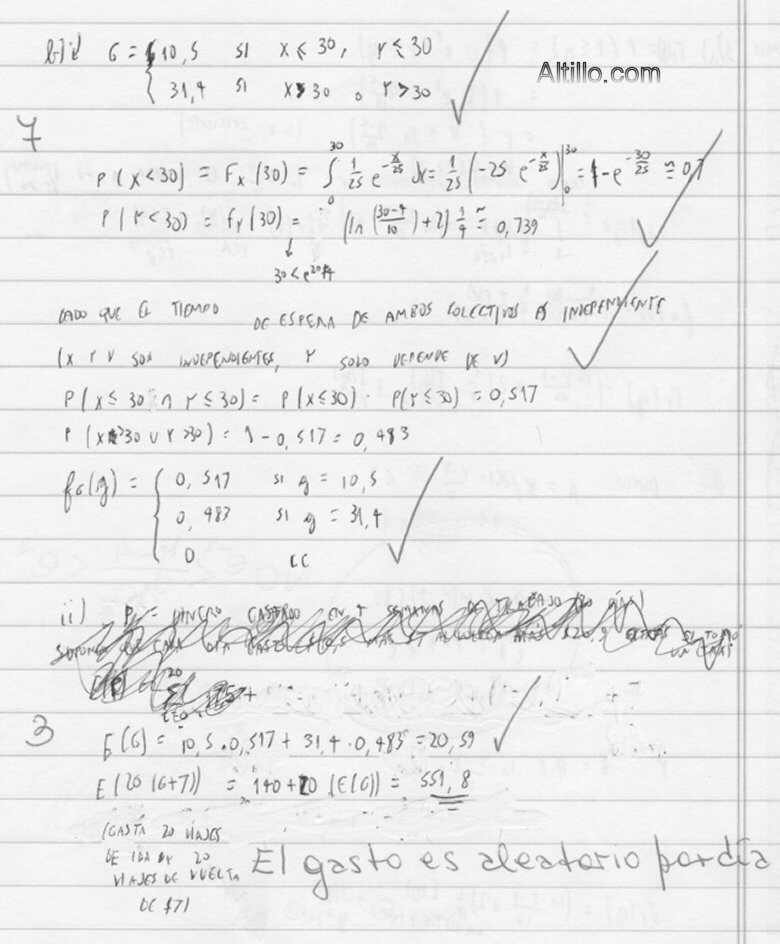 b)i) G = { 10,5 si x ≤ 30, Y ≤ 30
31,4 si x > 30 o Y > 30
Altillo.com
7
P(X<30) = Fx(30) = ∫₀³⁰ 1/25 e^(-x/25) dx = 1/25 (-25 e^(-x/25))|₀³⁰ = 1 - e^(-30/25) ≅ 0,7
P(Y<30) = fy(30) = (ln((30-4)/10)+2) 1/4 ≅ 0,739
↓
DADO QUE EL TIEMPO DE ESPERA DE AMBOS COLECTIVOS ES INDEPENDIENTE
(X Y V SON INDEPENDIENTES, Y SOLO DEPENDE DE V)
P(X ≤ 30 ∩ Y ≤ 30) = P(X ≤ 30) · P(Y ≤ 30) = 0,517
P(X > 30 ∪ Y > 30) = 1 - 0,517 = 0,483
fG(g) = { 0,517 si g = 10,5
0,483 si g = 31,4
0 CC
ii)
3
E(G) = 10,5 · 0,517 + 31,4 · 0,483 = 20,59
E(20(G+7)) = 140 + 20 (E(G)) = 551,8
(GASTA 20 VIAJES
DE IDA Y 20
VIAJES DE VUELTA
DE $7)
El gasto es aleatorio por día